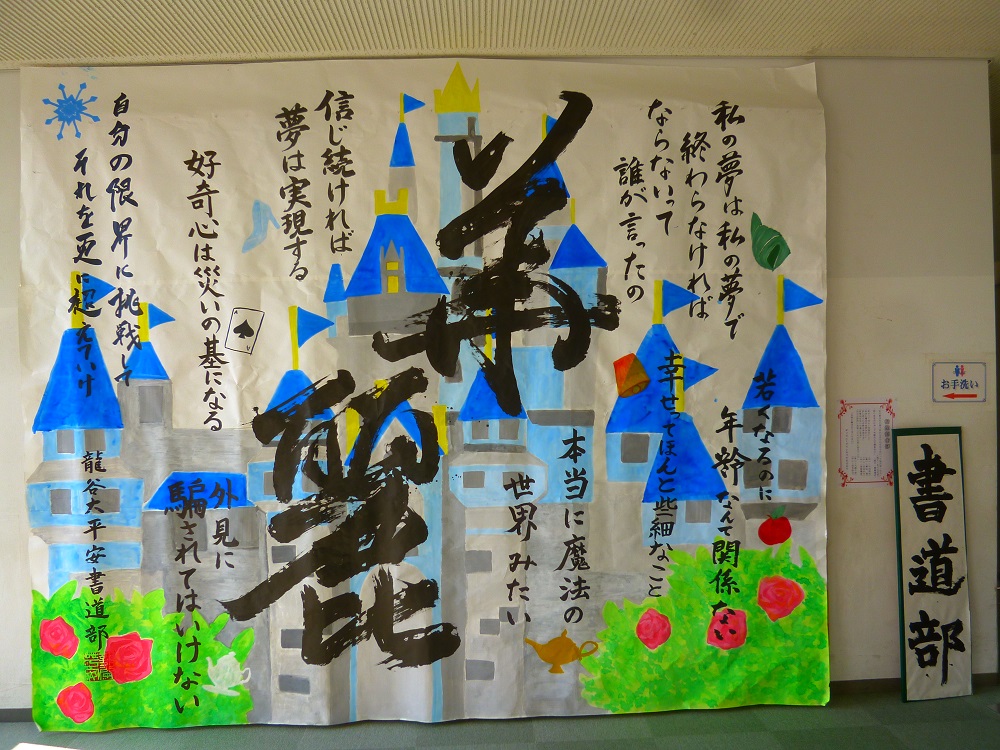 私の夢は私の夢で
終わらなければ
ならないって
誰が言ったの
若くなるのに
年齢なんて関係ない
幸せってほんと些細なこと
本当に魔法の
世界みたい
華麗
信じ続ければ
夢は実現する
好奇心は災いの基になる
外見に
騙されてはいけない
自分の限界に挑戦して
それを更に超えていけ
龍谷大平安書道部
お手洗い
書道部